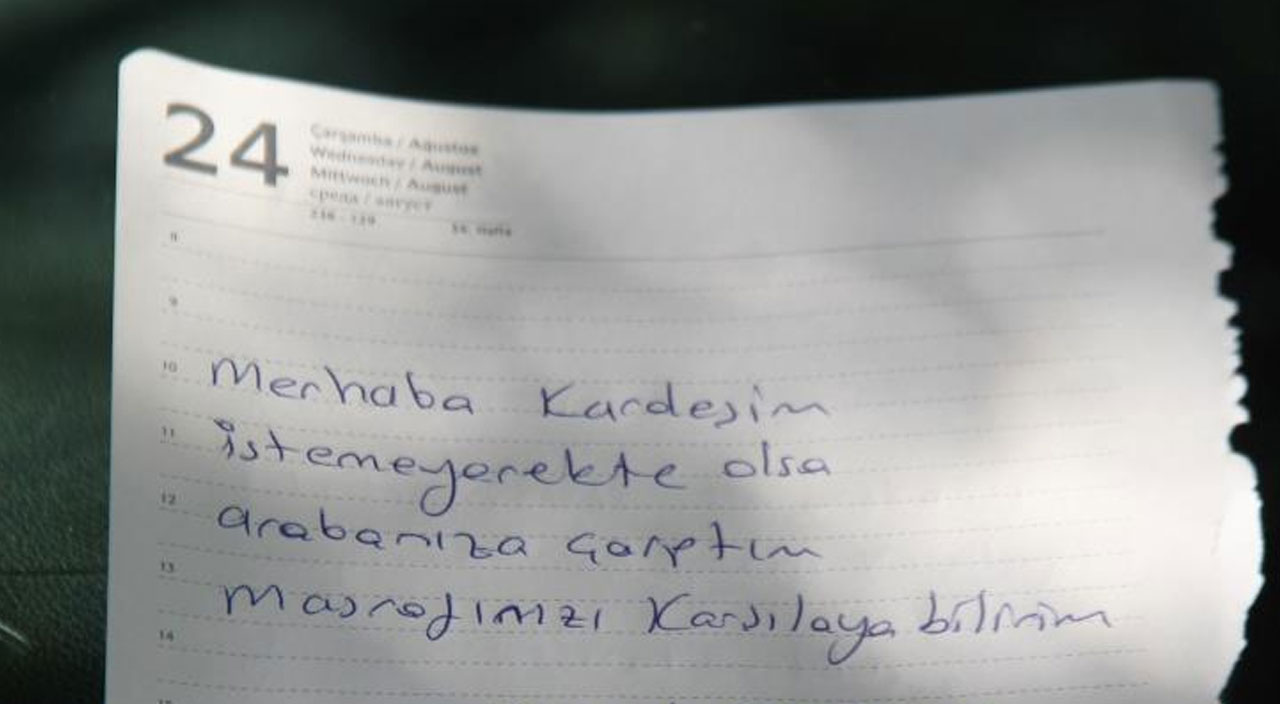 24
Çarşamba / Ağustos
Wednesday / August
Mittwoch / August
среда / август
236 - 129
34. Hafta
8
9
10 Merhaba Kardeşim
11 istemeyerekte olsa
12 arabanıza çarptım
13 Masrafınızı Karşılaya bilirim
14